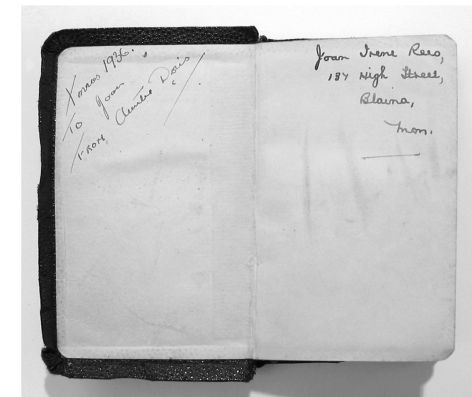 Xmas 1936.
To Joan
From Auntie Doris
Joan Irene Rees,
137 High Street,
Blaina,
Mon.